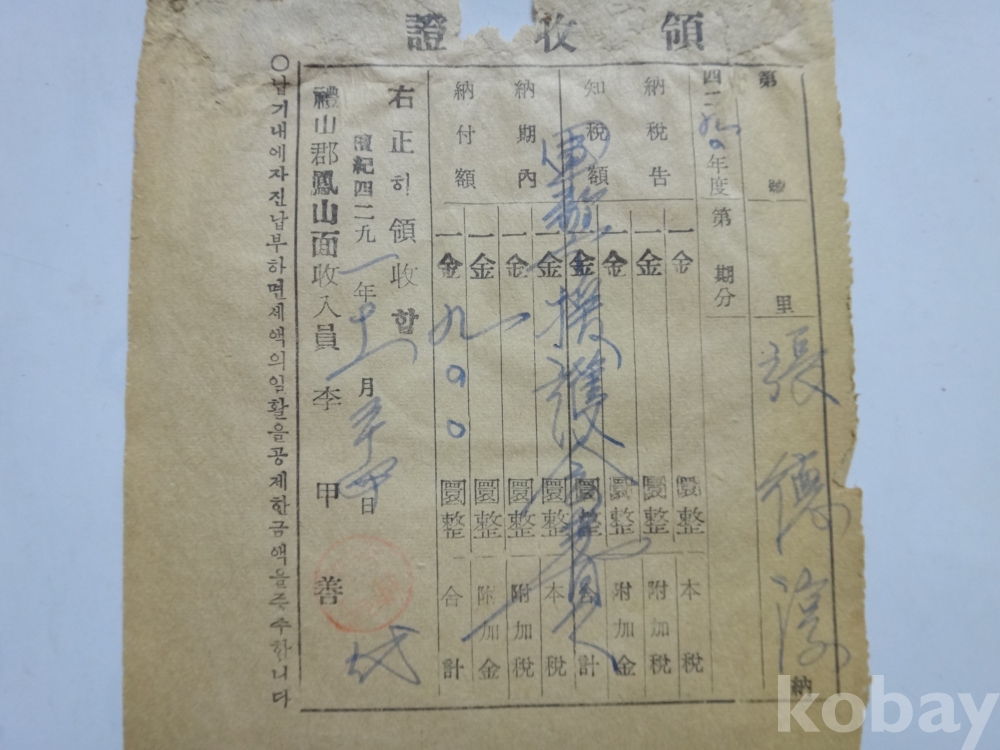 領收證
第 號 里 張德淳 納
四二九〇年度 第 期分
納稅告知稅額
一金 圜整 本稅
一金 圜整 附加稅
一金 圜整 附加金
一金 圜整 合計
納期內納付額
一金 圜整 本稅
一金 圜整 附加稅
一金 圜整 附加金
一金 九〇〇 圜整 合計
軍警援護會
右正히領收함
檀紀四二九一年 月 日
禮山郡鳳山面收入員 李甲善
代
○납기내에자진납부하면세액의일활을공제한금액을즉수합니다
kobay